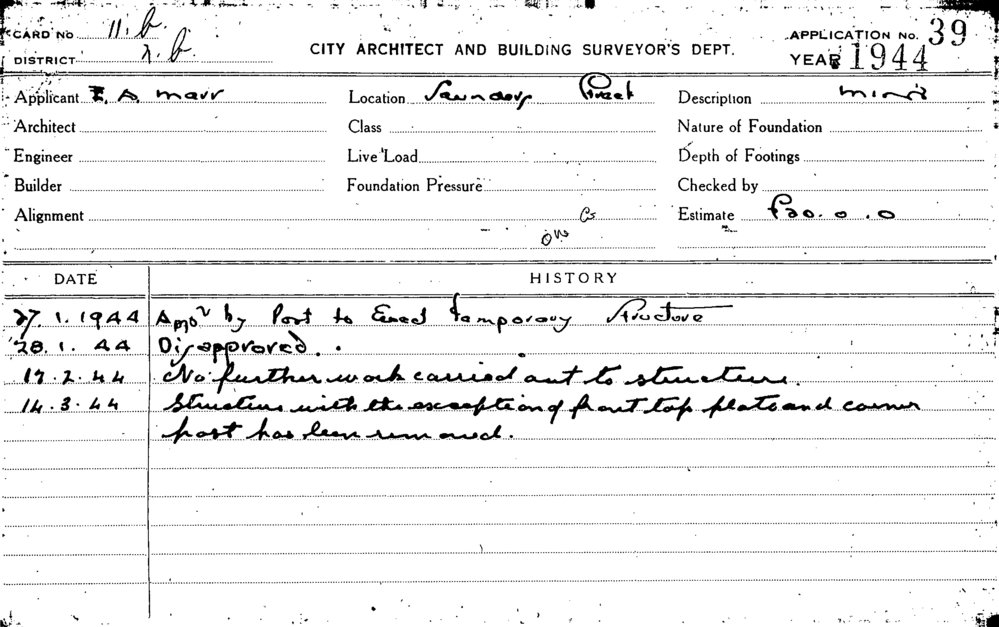 CARD No 11.b.
DISTRICT 2.b.
CITY ARCHITECT AND BUILDING SURVEYOR'S DEPT.
APPLICATION No. 39
YEAR 1944
Applicant E. A. Marr
Location Saunders Street
Description
Architect
Class
Nature of Foundation
Engineer
Live Load
Depth of Footings
Builder
Foundation Pressure
Checked by
Alignment
Estimate £20.0.0
DATE
HISTORY
27.1.1944 by Post to Erect temporary Structure
28.1.44 Disapproved.
17.2.44 No further work carried out to structure.
14.3.44 Structure with the exception of front top plate and corner
post has been removed.